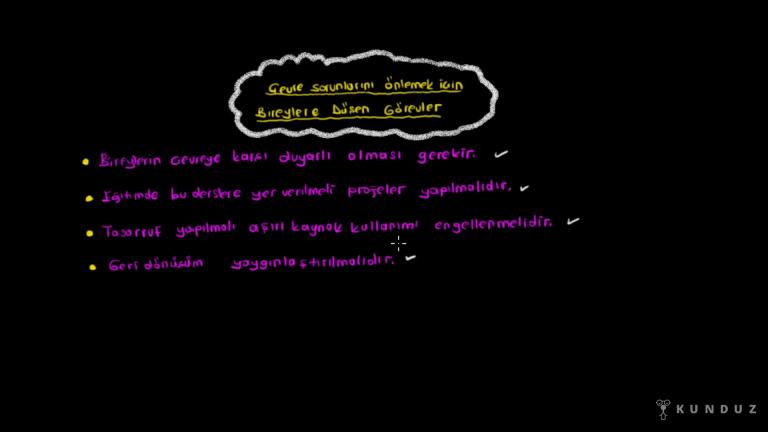 Çevre sorunlarını önlemek için
Bireylere Düşen Görevler
Bireylerin çevreye karşı duyarlı olması gerekir.
Eğitimde bu derslere yer verilmeli projeler yapılmalıdır.
Tasarruf yapılmalı aşırı kaynak kullanımı engellenmelidir.
Geri dönüşüm yaygınlaştırılmalıdır.
KUNDUZ